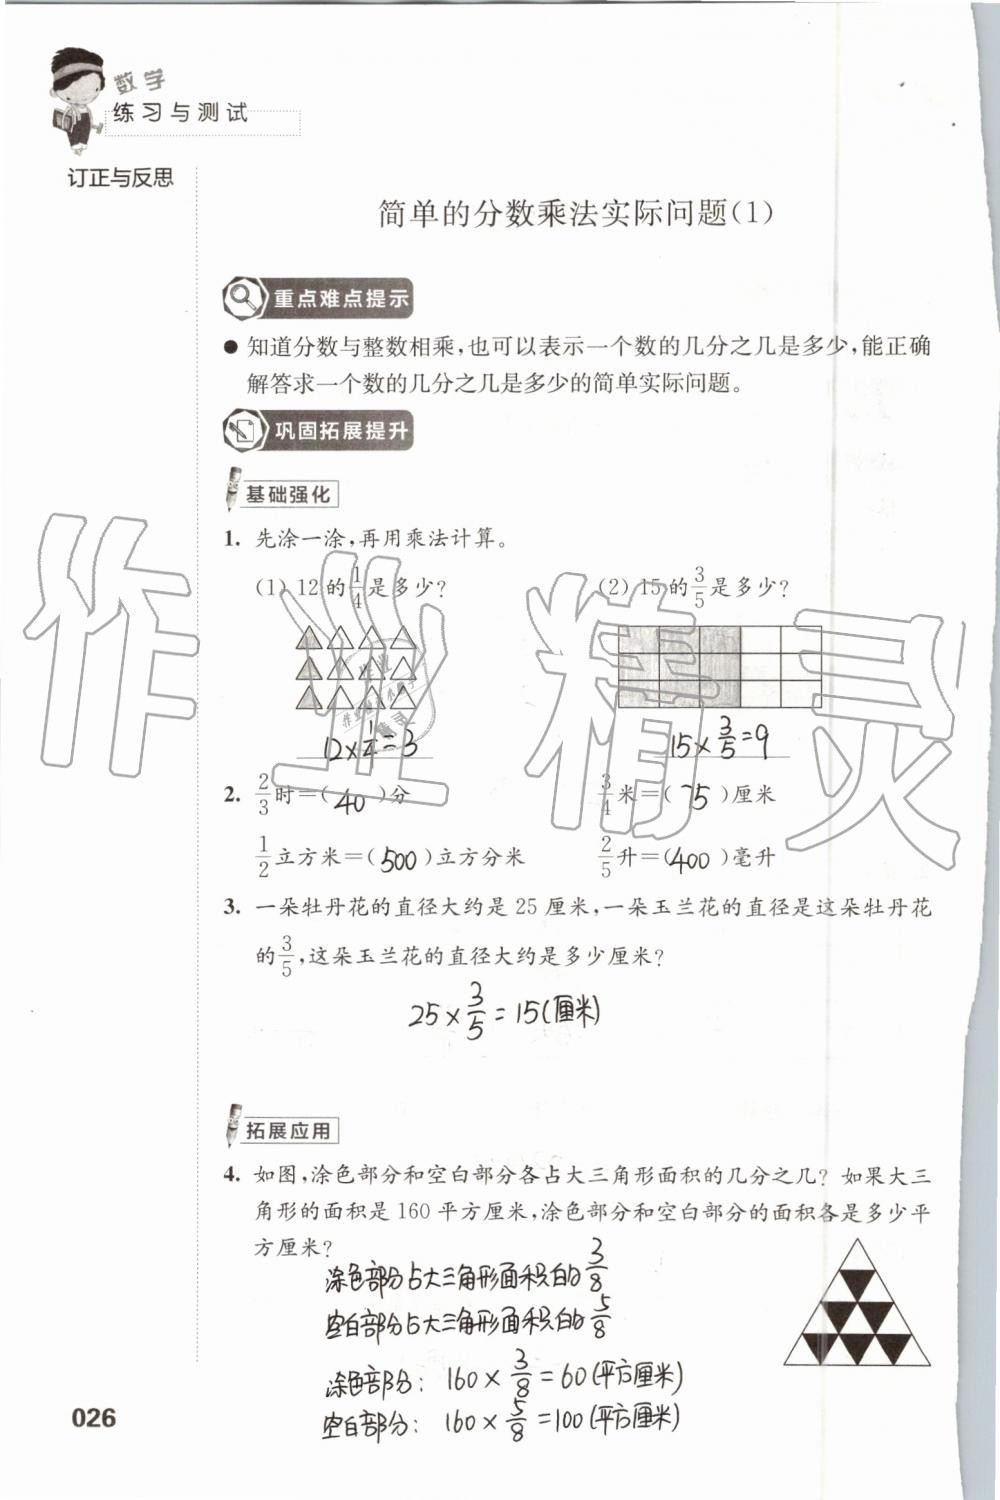 数学
练习与测试
订正与反思
简单的分数乘法实际问题(1)
重点难点提示
● 知道分数与整数相乘,也可以表示一个数的几分之几是多少,能正确
解答求一个数的几分之几是多少的简单实际问题。
巩固拓展提升
基础强化
1. 先涂一涂,再用乘法计算。
(1) 12的1/4是多少? (2) 15的3/5是多少?
12×1/4=3 15×3/5=9
2. 2/3时=(40)分 3/4米=(75)厘米
1/2立方米=(500)立方分米 2/5升=(400)毫升
3. 一朵牡丹花的直径大约是25厘米,一朵玉兰花的直径是这朵牡丹花
的3/5,这朵玉兰花的直径大约是多少厘米?
25×3/5=15(厘米)
拓展应用
4. 如图,涂色部分和空白部分各占大三角形面积的几分之几? 如果大三
角形的面积是160平方厘米,涂色部分和空白部分的面积各是多少平
方厘米?
涂色部分占大三角形面积的3/8
空白部分占大三角形面积的5/8
涂色部分: 160×3/8=60(平方厘米)
空白部分: 160×5/8=100(平方厘米)
026
作业精灵